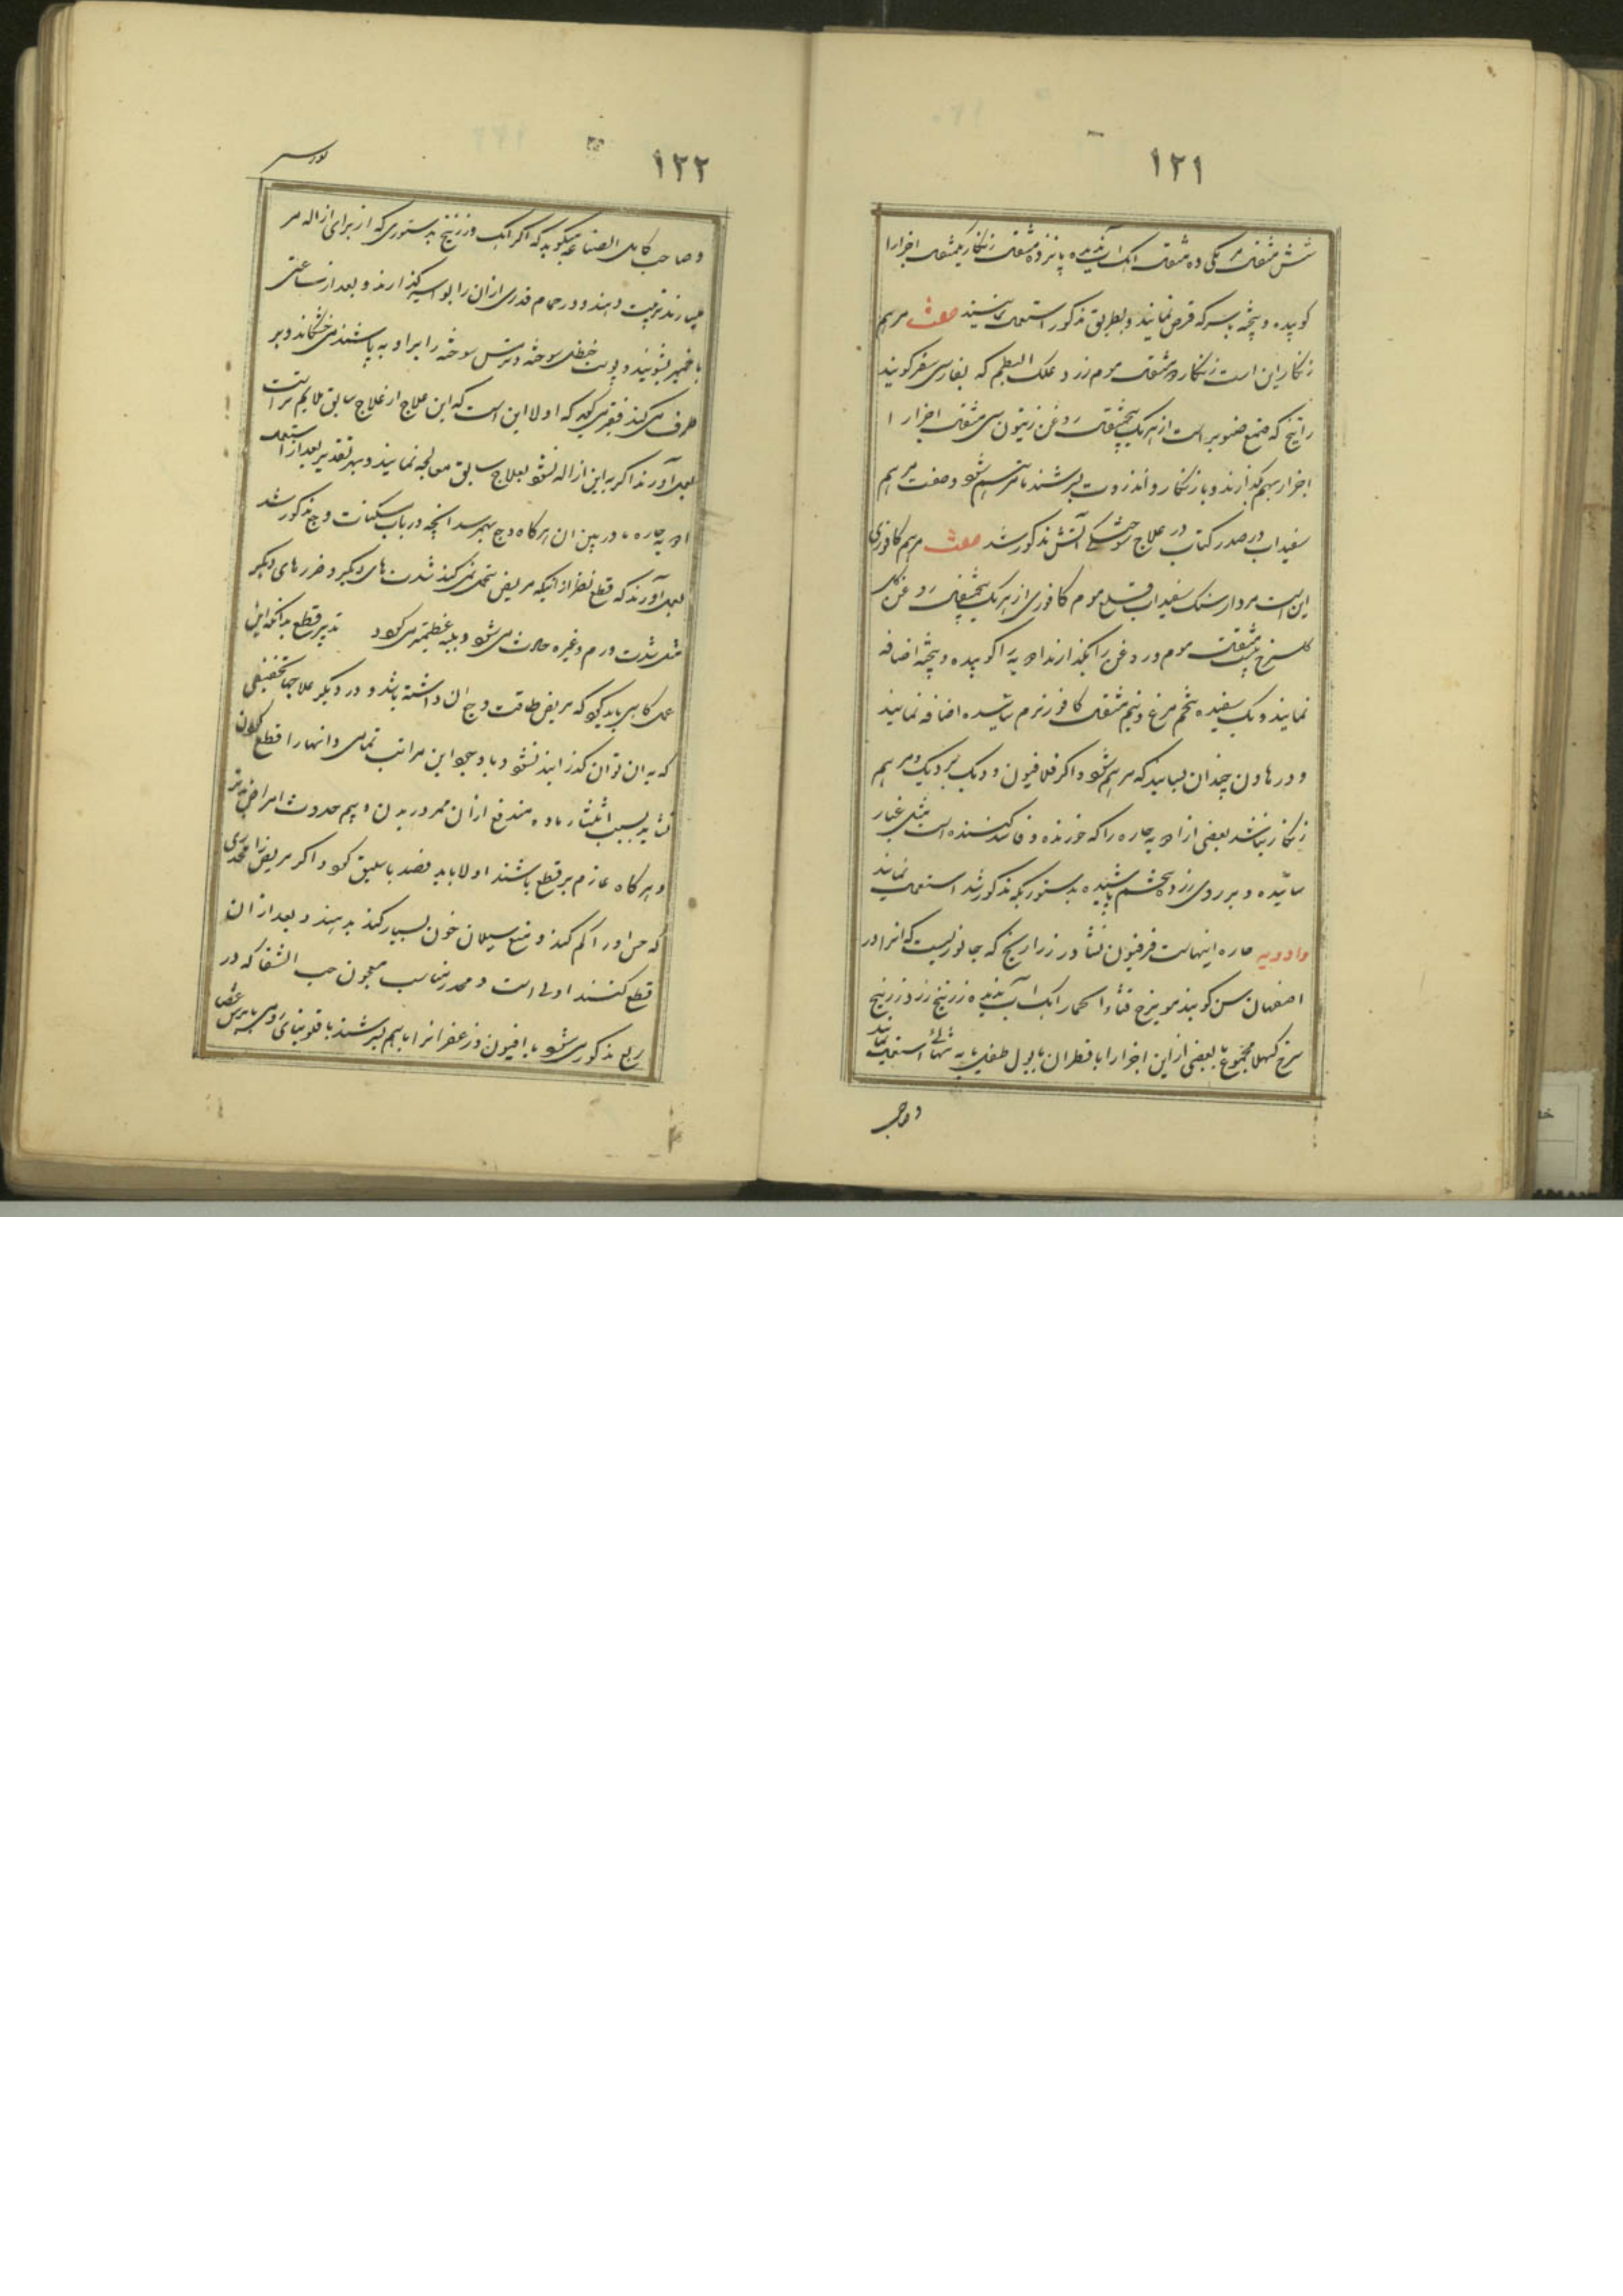 ۱۲۱
شش مثقال مر مکی ده مثقال آهک آب ندیده پانزده مثقال زنکار یکمثقال اجزا را
کوبیده و پخته با سرکه قرص نمایند و بطریق مذکور استعمال نمایند صفت مرهم
زنکار این است زنکار دو مثقال موم زرد علک البطم که بفارسی سقز کویند
راتینج که صمغ صنوبر است از هر یک پنجمثقال روغن زیتون سی مثقال اجزا را
اجزا را بهم بکدازند و با زنکار و انزروت بسرشند تا مرهم شود و صفت مرهم
سفیداب در صدر کتاب در علاج سوختکی آتش مذکور شد صفت مرهم کافوری
این است مردار سنک سفیداب قلع موم کافوری از هر یک پنجمثقال روغن کل
کلسرخ بیست مثقال موم و روغن را بکدازند ادویه را کوبیده و پخته اضافه
نمایند و یک سفیده تخم مرغ و نیم مثقال کافور نرم سائیده اضافه نمایند
و در هاون چندان بسایند که مرهم شود و اکر قلافیون و دیک بر دیک و مرهم
زنکار نباشد بعضی از ادویه حاره را که خورنده و فاسد کننده است مثل غبار
سائیده و بر روی زرده تخم پاشیده بدستوریکه مذکور شد استعمال نمایند
وادویه حاره اینهاست فرفیون نشادر زراریح که جانوریست که انرا در
اصفهان سن کویند مویزج قثاء الحمار آهک آب ندیده زرنیخ زرد زرنیخ
سرخ کهلا مجموع یا بعضی از این اجزا را با قطران یا بول طفل یا به تنهائی استعمال نمایند
وصاحب
۱۲۲
و صاحب کامل الصناعه میکوید که اکر آهک و زرنیخ بدستوری که از برای ازاله مو
میسازند ترتیب دهند و در حمام قدری از ان را بواسیر کذارند و بعد از ساعتی
با خمیر بشویند و پوست حنظل سوخته و ترمس سوخته را بر او به پاشند می خشکاند و بر
طرف می کند فقیر میکوید که اولا این است که این علاج از علاج سابق ملایم تر است
بعمل آورند اکر به این ازاله نشود بعلاج سابق معالجه نمایند و بهر تقدیر بعد از استعمال
ادویه حاره یا در بین ان هرکاه وجع بهمرسد آنچه در باب مسکنات وجع مذکور شد
بعمل آورند که قطع نظر از آنیکه مریض تحمل نمی کند شدت های دیکر و ضررهای دیکر
مثل شدت ورم و غیره حادث می شود و بلیه عظیمه می کردد تدبیر قطع بدانکه این
عمل کاهی باید کرد که مریض طاقت وجع ان داشته باشد و در دیکر علاجها تخفیفی
که به ان توان کذرانید نشود و با وجود این مراتب تمامی دانها را قطع کردن
نشاید بسبب انتشار ماده مندفع از ان ممر در بدن و بیم حدوث امراض
و هرکاه عازم بر قطع باشند اولا باید فصد باسلیق کرد و اکر مریض را مخدری
که حس او را کم کند و منع سیلان خون بسیار کند بدهند و بعد از ان
قطع کنند اولی است و مخدر مناسب معجون حب الشفا که در
ربع مذکور می شود یا افیون و زعفرانرا باهم بسرشند با فلونیای رومی